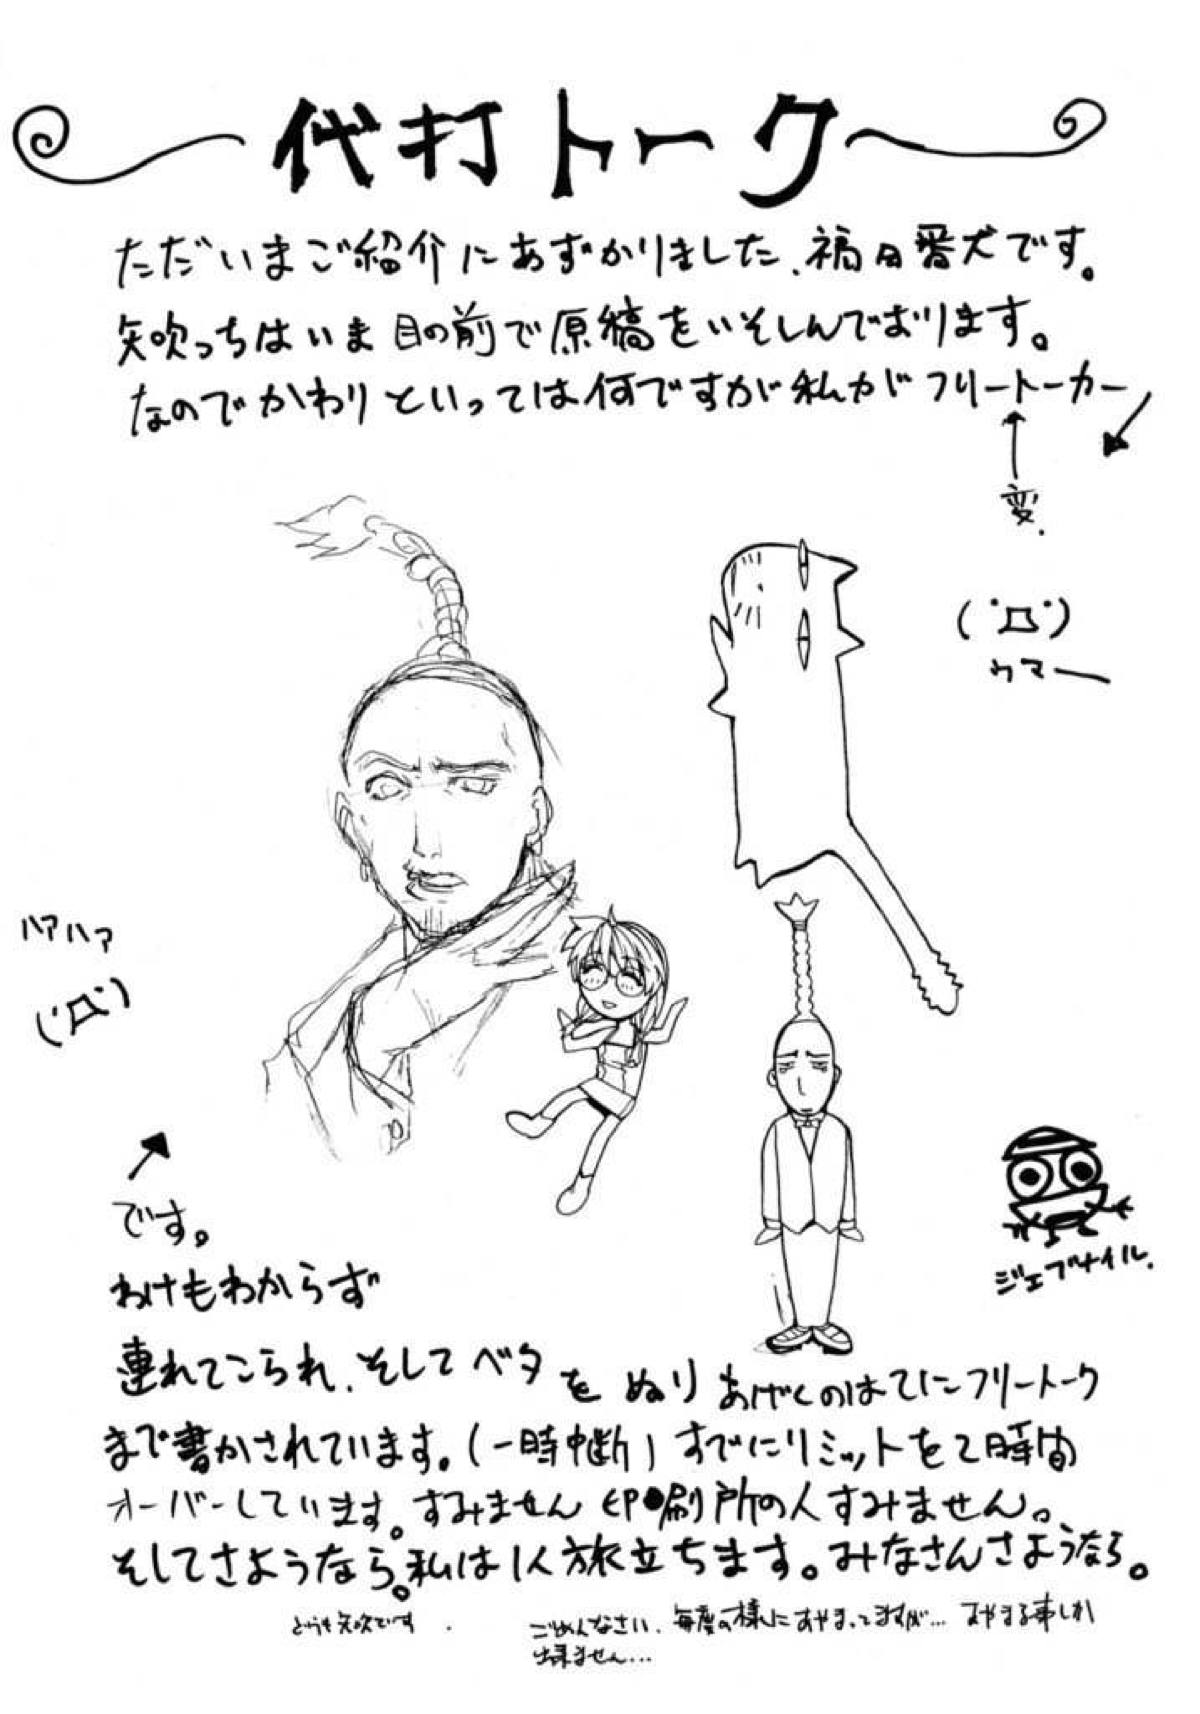 代打トーク
ただいまご紹介にあずかりました、福田番犬です。
矢吹っちはいま目の前で原稿をいそしんでおります。
なのでかわりといっては何ですが私がフリートーカー
変.
(゜ロ゜)
ウマー
ハァハァ
(゜ロ゜)
ジェフナイル.
です。
わけもわからず
連れてこられ、そしてベタをぬりあげくのはてにフリートーク
まで書かされています。(一時中断)すでにリミットを2時間
オーバーしています。すみません印刷所の人すみません。
そしてさようなら。私は1人旅立ちます。みなさんさようなら。
どうも矢吹です.
ごめんなさい、毎度の様にあやまってますが… あやまる事しか
出来ません…